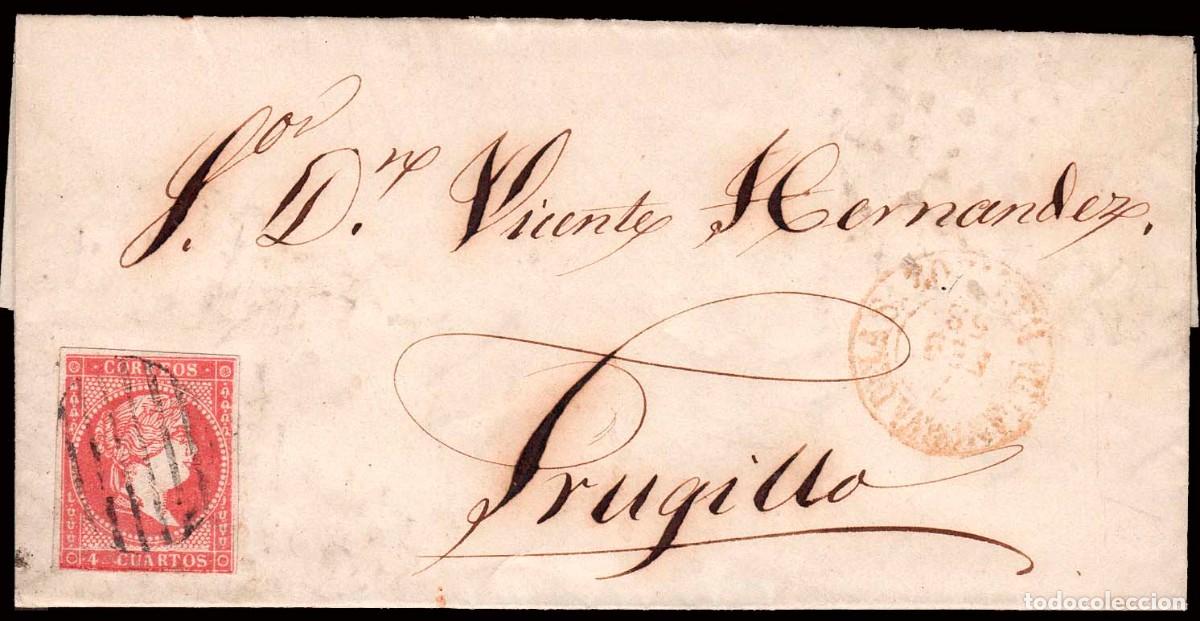 S.ᵒʳ D.ⁿ Vicente Hernandez.
Trugillo
CORREOS
4 CUARTOS
todocoleccion